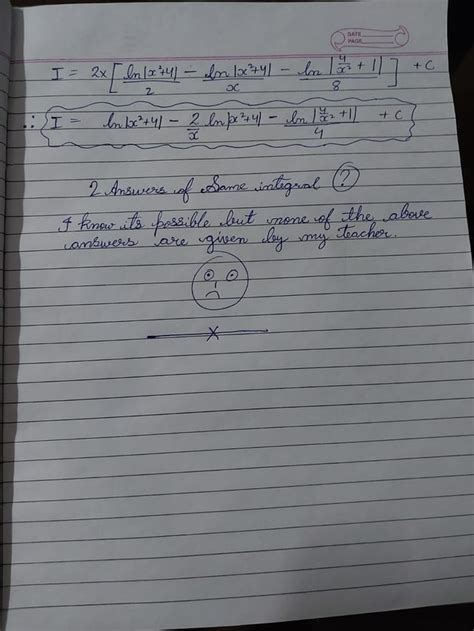 DATE
PAGE
I = 2x[ln|x²+4|/2 - ln|x²+4|/x - ln|4/x²+1|/8] + C
∴ I = ln|x²+4| - 2/x ln|x²+4| - ln|4/x²+1|/4 + C
2 Answers of Same integral ?
I know its possible but none of the above
answers are given by my teacher.
x